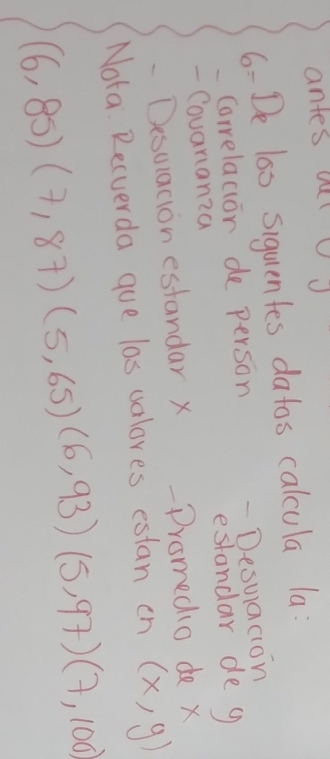 antes del
6= De los siguientes datos calcula la:
- Correlación de person
- Covarianza
- Desviación estandar x
- Desviación estandar de y
- Promedio de x
Nota: Recuerda que los valores estan en (x, y)
(6, 85) (7, 87) (5, 65) (6, 93) (5, 97) (7, 100)